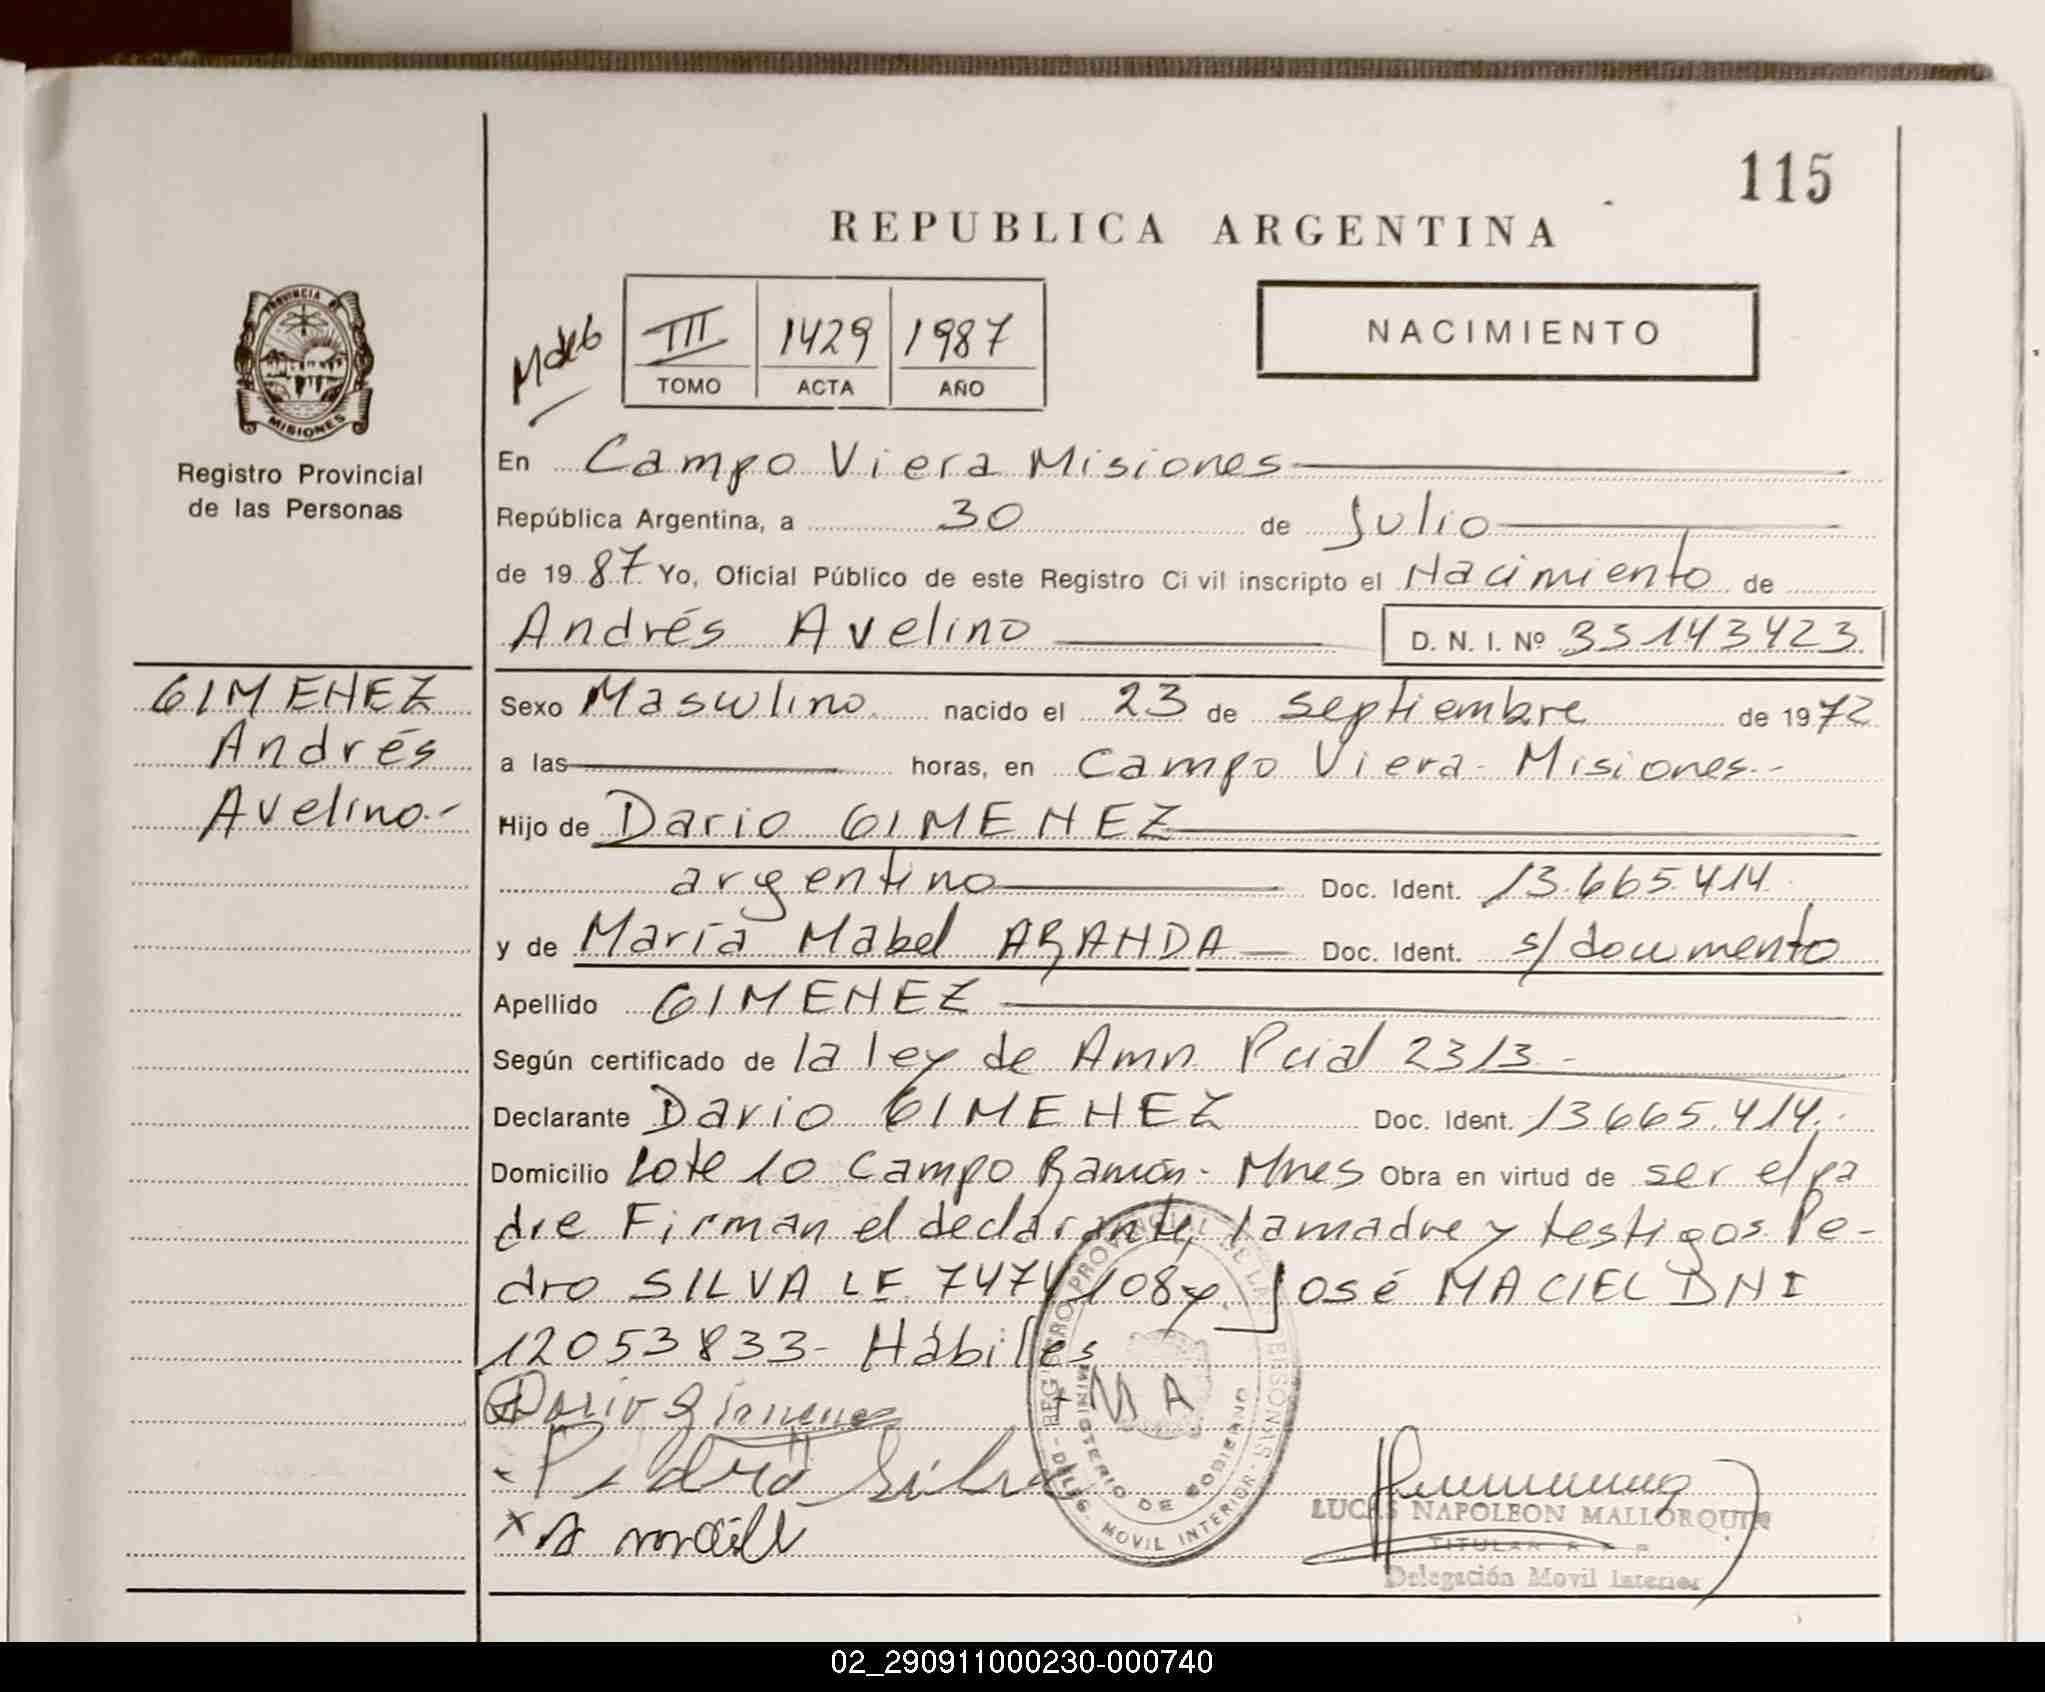 115
REPUBLICA ARGENTINA
PROVINCIA DE
MISIONES
Registro Provincial
de las Personas
III 1429 1987
TOMO ACTA AÑO
NACIMIENTO
En Campo Viera Misiones
República Argentina, a 30 de Julio
de 1987 Yo, Oficial Público de este Registro Civil inscripto el Nacimiento de
Andrés Avelino D. N. I. Nº 33143423
GIMENEZ
Andrés
Avelino.-
Sexo Masculino nacido el 23 de septiembre de 1972
a las horas, en Campo Viera - Misiones.-
Hijo de Dario GIMENEZ
argentino Doc. Ident. 13.665.414
y de María Mabel ARANDA Doc. Ident. s/documento
Apellido GIMENEZ
Según certificado de la ley de Amn. Pcial 2313 -
Declarante Dario GIMENEZ Doc. Ident. 13.665.414.-
Domicilio Lote 10 Campo Ramón - Mnes Obra en virtud de ser el pa
dre Firman el declarante, la madre y testigos Pe-
dro SILVA LE 7474108 y José MACIEL DNI
12053833 - Hábiles
Dario Gimenez + M A
Pedro Silva
REGISTRO PROVINCIAL DE LAS PERSONAS - DELEG. MOVIL INTERIOR -
MINISTERIO DE GOBIERNO
LUCAS NAPOLEON MALLORQUIN
TITULAR R P P
Delegación Movil Interior
02_290911000230-000740